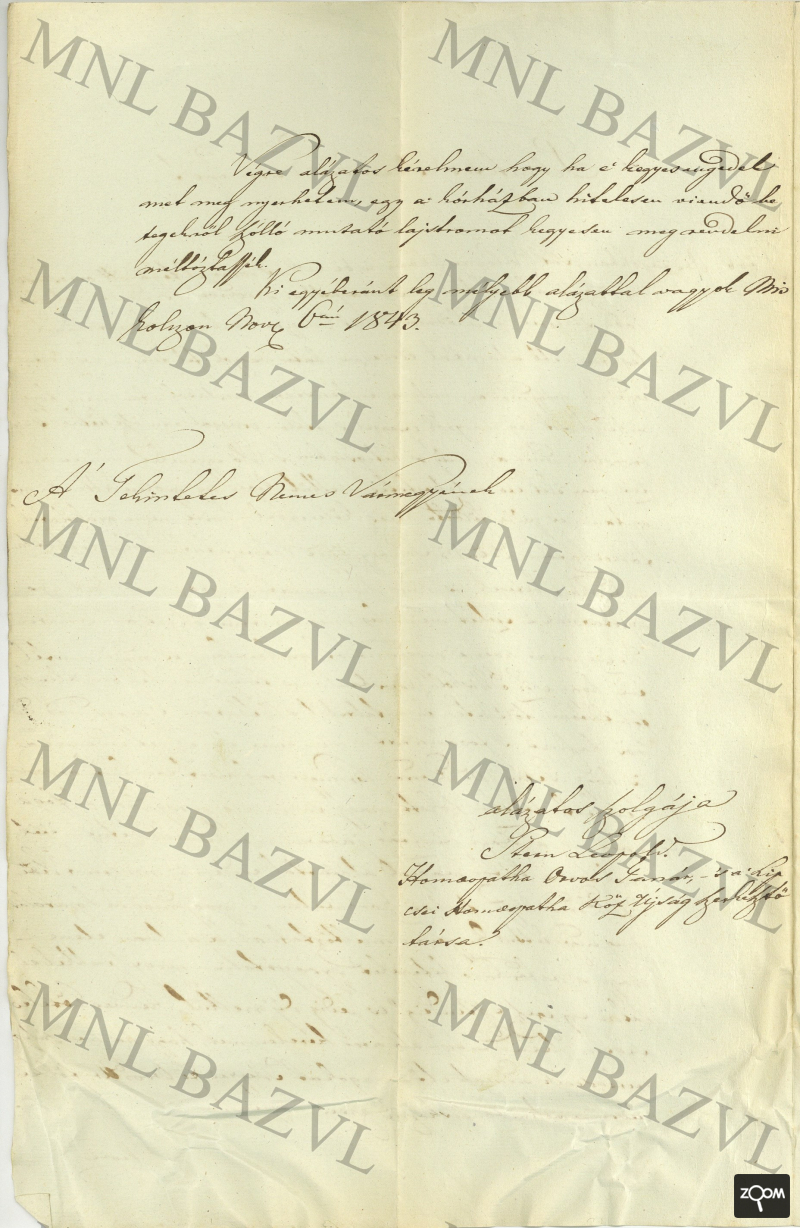 Végre alázatos kérelmem hogy ha e' kegyes engedel
met meg nyerhetem, egy a' kórházban hitelesen viendő be
tegekröl szólló mutató lajstromot kegyesen meg rendelni
méltóztassék.
Ki egyéberánt leg mélyebb alázattal vagyok Mis
kolczon Nov 6án 1843.
A' Tekintetes Nemes Vármegyének
alázatos szolgája
Stern Leopold.
Homœopatha Orvos Tanár, - s a' Lip
csei Homœopatha Köz Ujság szerkesztö
társa.
MNL BAZVL
MNL BAZVL
MNL BAZVL
MNL BAZVL
MNL BAZVL
MNL BAZVL
MNL BAZVL
MNL BAZVL
MNL BAZVL
MNL BAZVL
ZOOM